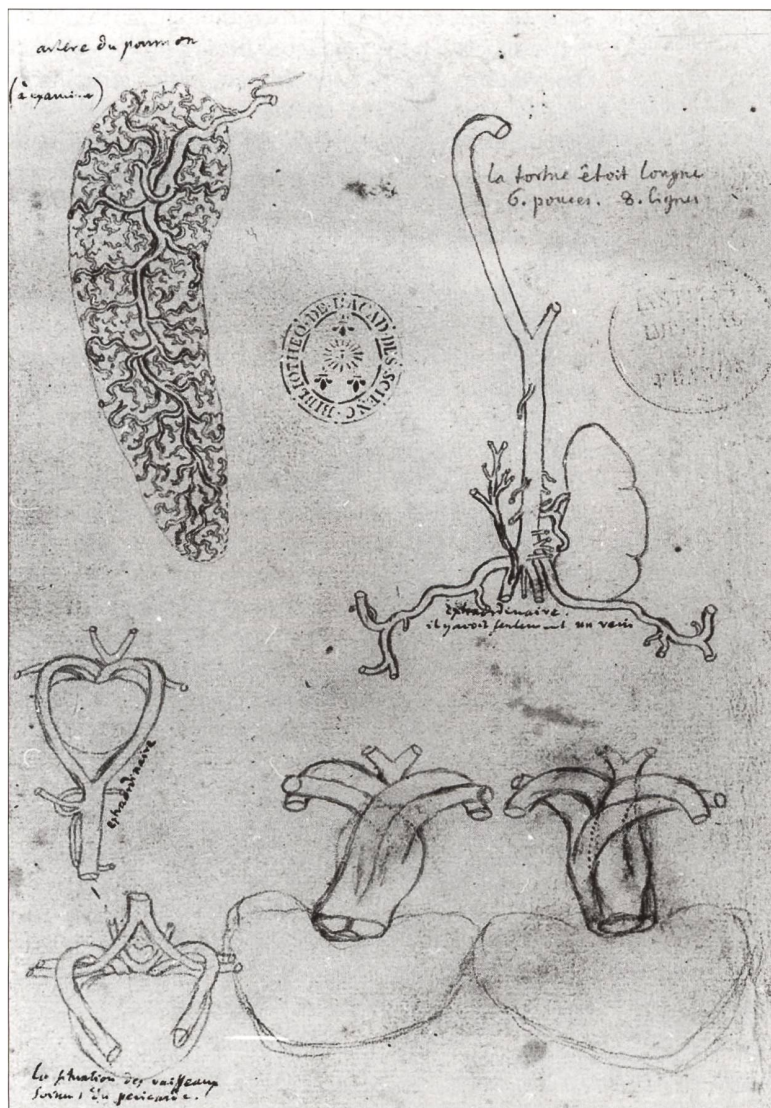 artère du poumon
(à examiner)
la tortue êtoit longue
6. pouces. 8. lignes
BIBLIOTHEQ·DE·L'ACAD·DES·SCIENC·
INSTITUT
IMPERIAL
DE
FRANCE
extraordinaire.
il y avoit seulement un
extraordinaire
La situation des vaisseaux
du pericarde.